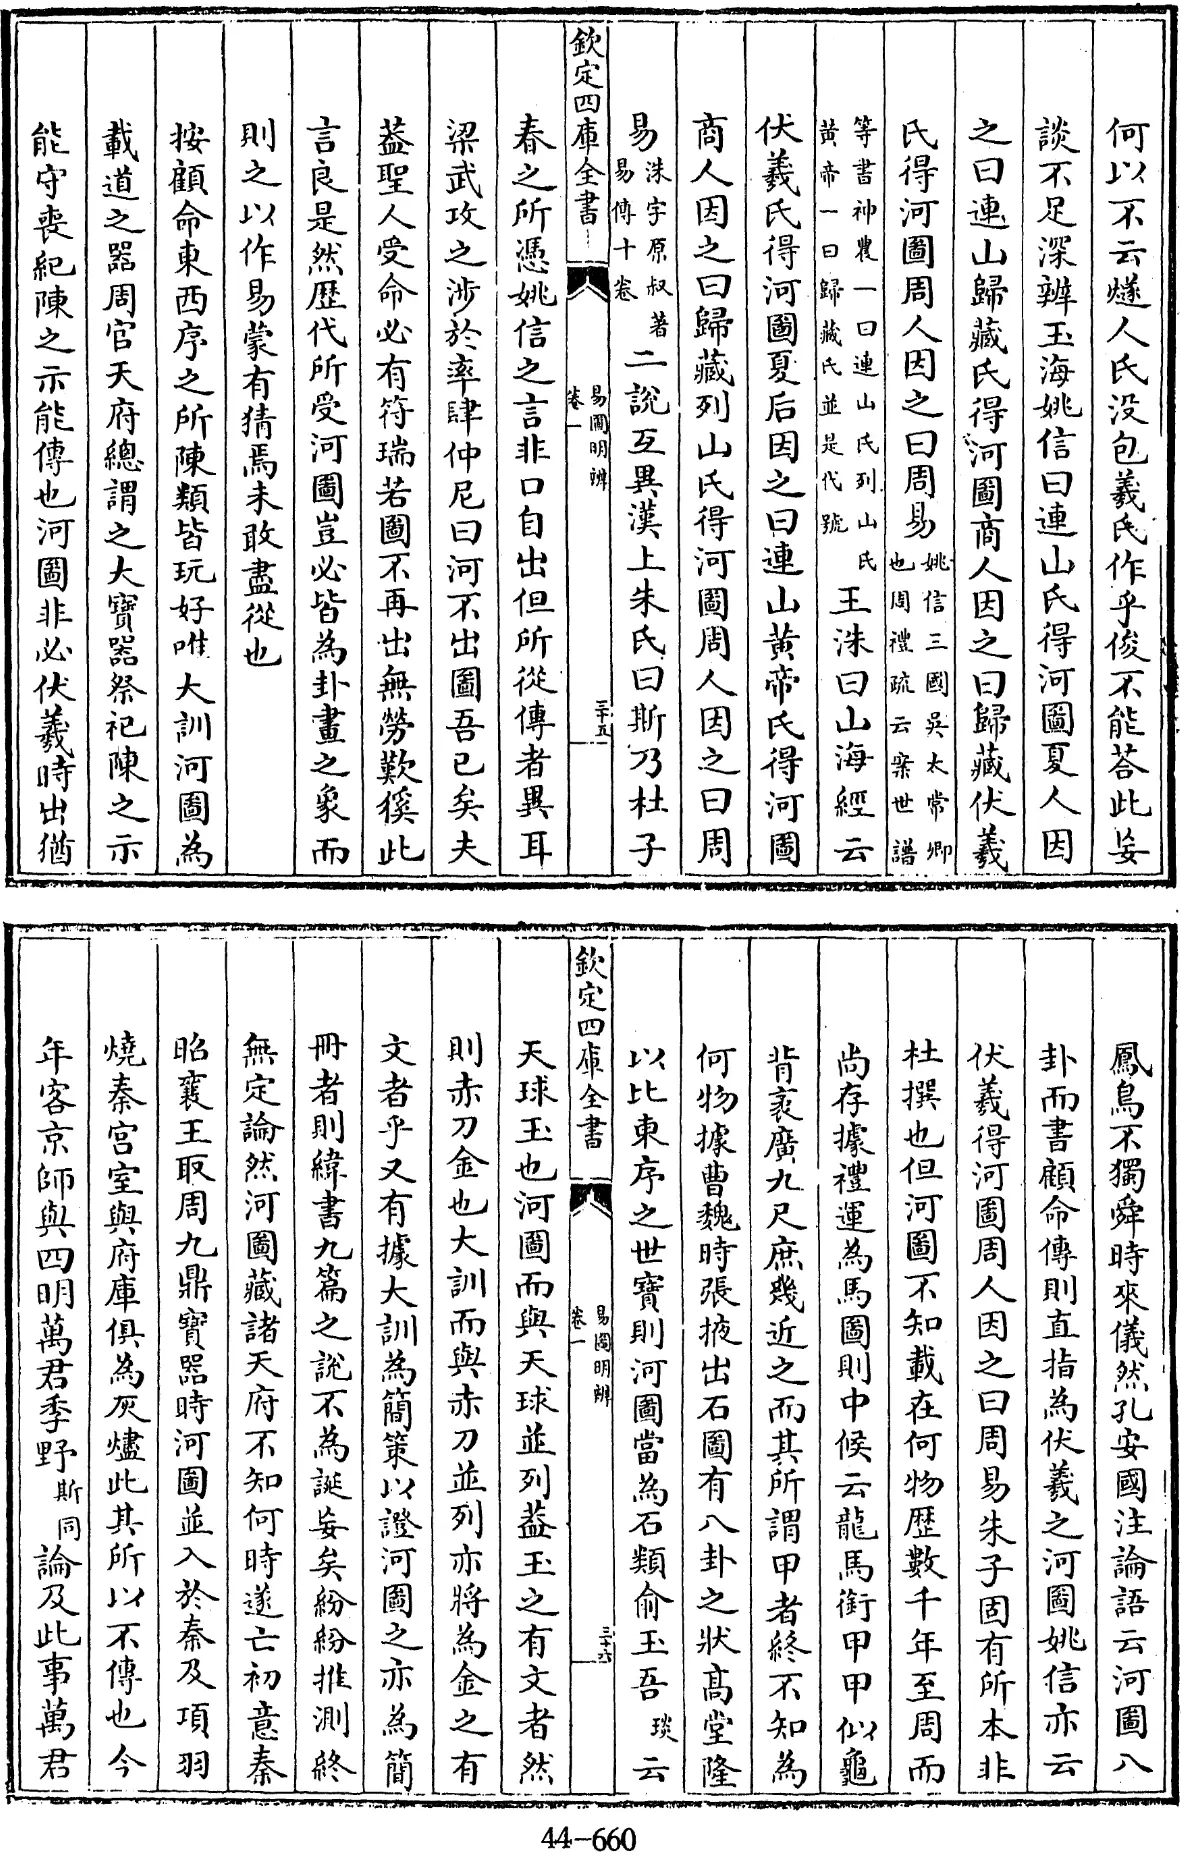 何以不云燧人氏没包羲氏作乎俊不能荅此妄
談不足深辨玉海姚信曰連山氏得河圖夏人因
之曰連山歸藏氏得河圖商人因之曰歸藏伏羲
氏得河圖周人因之曰周易姚信三國吳太常卿也周禮疏云案世譜
等書神農一曰連山氏列山氏黄帝一曰歸藏氏並是代號王洙曰山海經云
伏羲氏得河圖夏后因之曰連山黄帝氏得河圖
商人因之曰歸藏列山氏得河圖周人因之曰周
易洙字原叔著易傳十卷二說互異漢上朱氏曰斯乃杜子
欽定四庫全書
易圖明辨
卷一
三十五
春之所憑姚信之言非口自出但所從傳者異耳
梁武攻之涉於率肆仲尼曰河不出圖吾已矣夫
葢聖人受命必有符瑞若圖不再出無勞歎徯此
言良是然歴代所受河圖豈必皆為卦畫之象而
則之以作易蒙有猜焉未敢盡從也
按顧命東西序之所陳類皆玩好唯大訓河圖為
載道之器周官天府總謂之大寶器祭祀陳之示
能守喪紀陳之示能傳也河圖非必伏羲時出猶
鳳鳥不獨舜時來儀然孔安國注論語云河圖八
卦而書顧命傳則直指為伏羲之河圖姚信亦云
伏羲得河圖周人因之曰周易朱子固有所本非
杜撰也但河圖不知載在何物歴數千年至周而
尚存據禮運為馬圖則中候云龍馬銜甲甲似龜
背袤廣九尺庶幾近之而其所謂甲者終不知為
何物據曹魏時張掖出石圖有八卦之狀高堂隆
以比東序之世寶則河圖當為石類俞玉吾琰云
欽定四庫全書
易圖明辨
卷一
三十六
天球玉也河圖而與天球並列葢玉之有文者然
則赤刀金也大訓而與赤刀並列亦將為金之有
文者乎又有據大訓為簡策以證河圖之亦為簡
冊者則緯書九篇之說不為誕妄矣紛紛推測終
無定論然河圖藏諸天府不知何時遂亡初意秦
昭襄王取周九鼎寶器時河圖並入於秦及項羽
燒秦宮室與府庫俱為灰燼此其所以不傳也今
年客京師與四明萬君季野斯同論及此事萬君
44-660